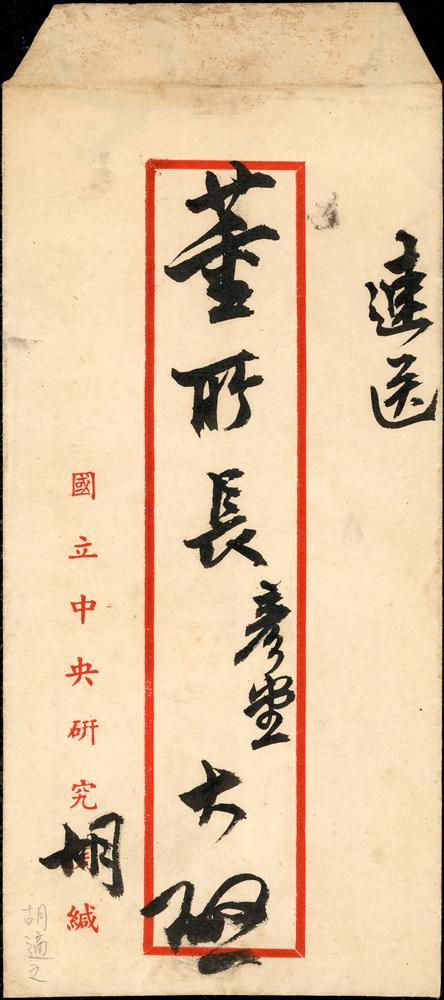 速送
董所長彥堂大啟
國立中央研究胡緘
胡適之